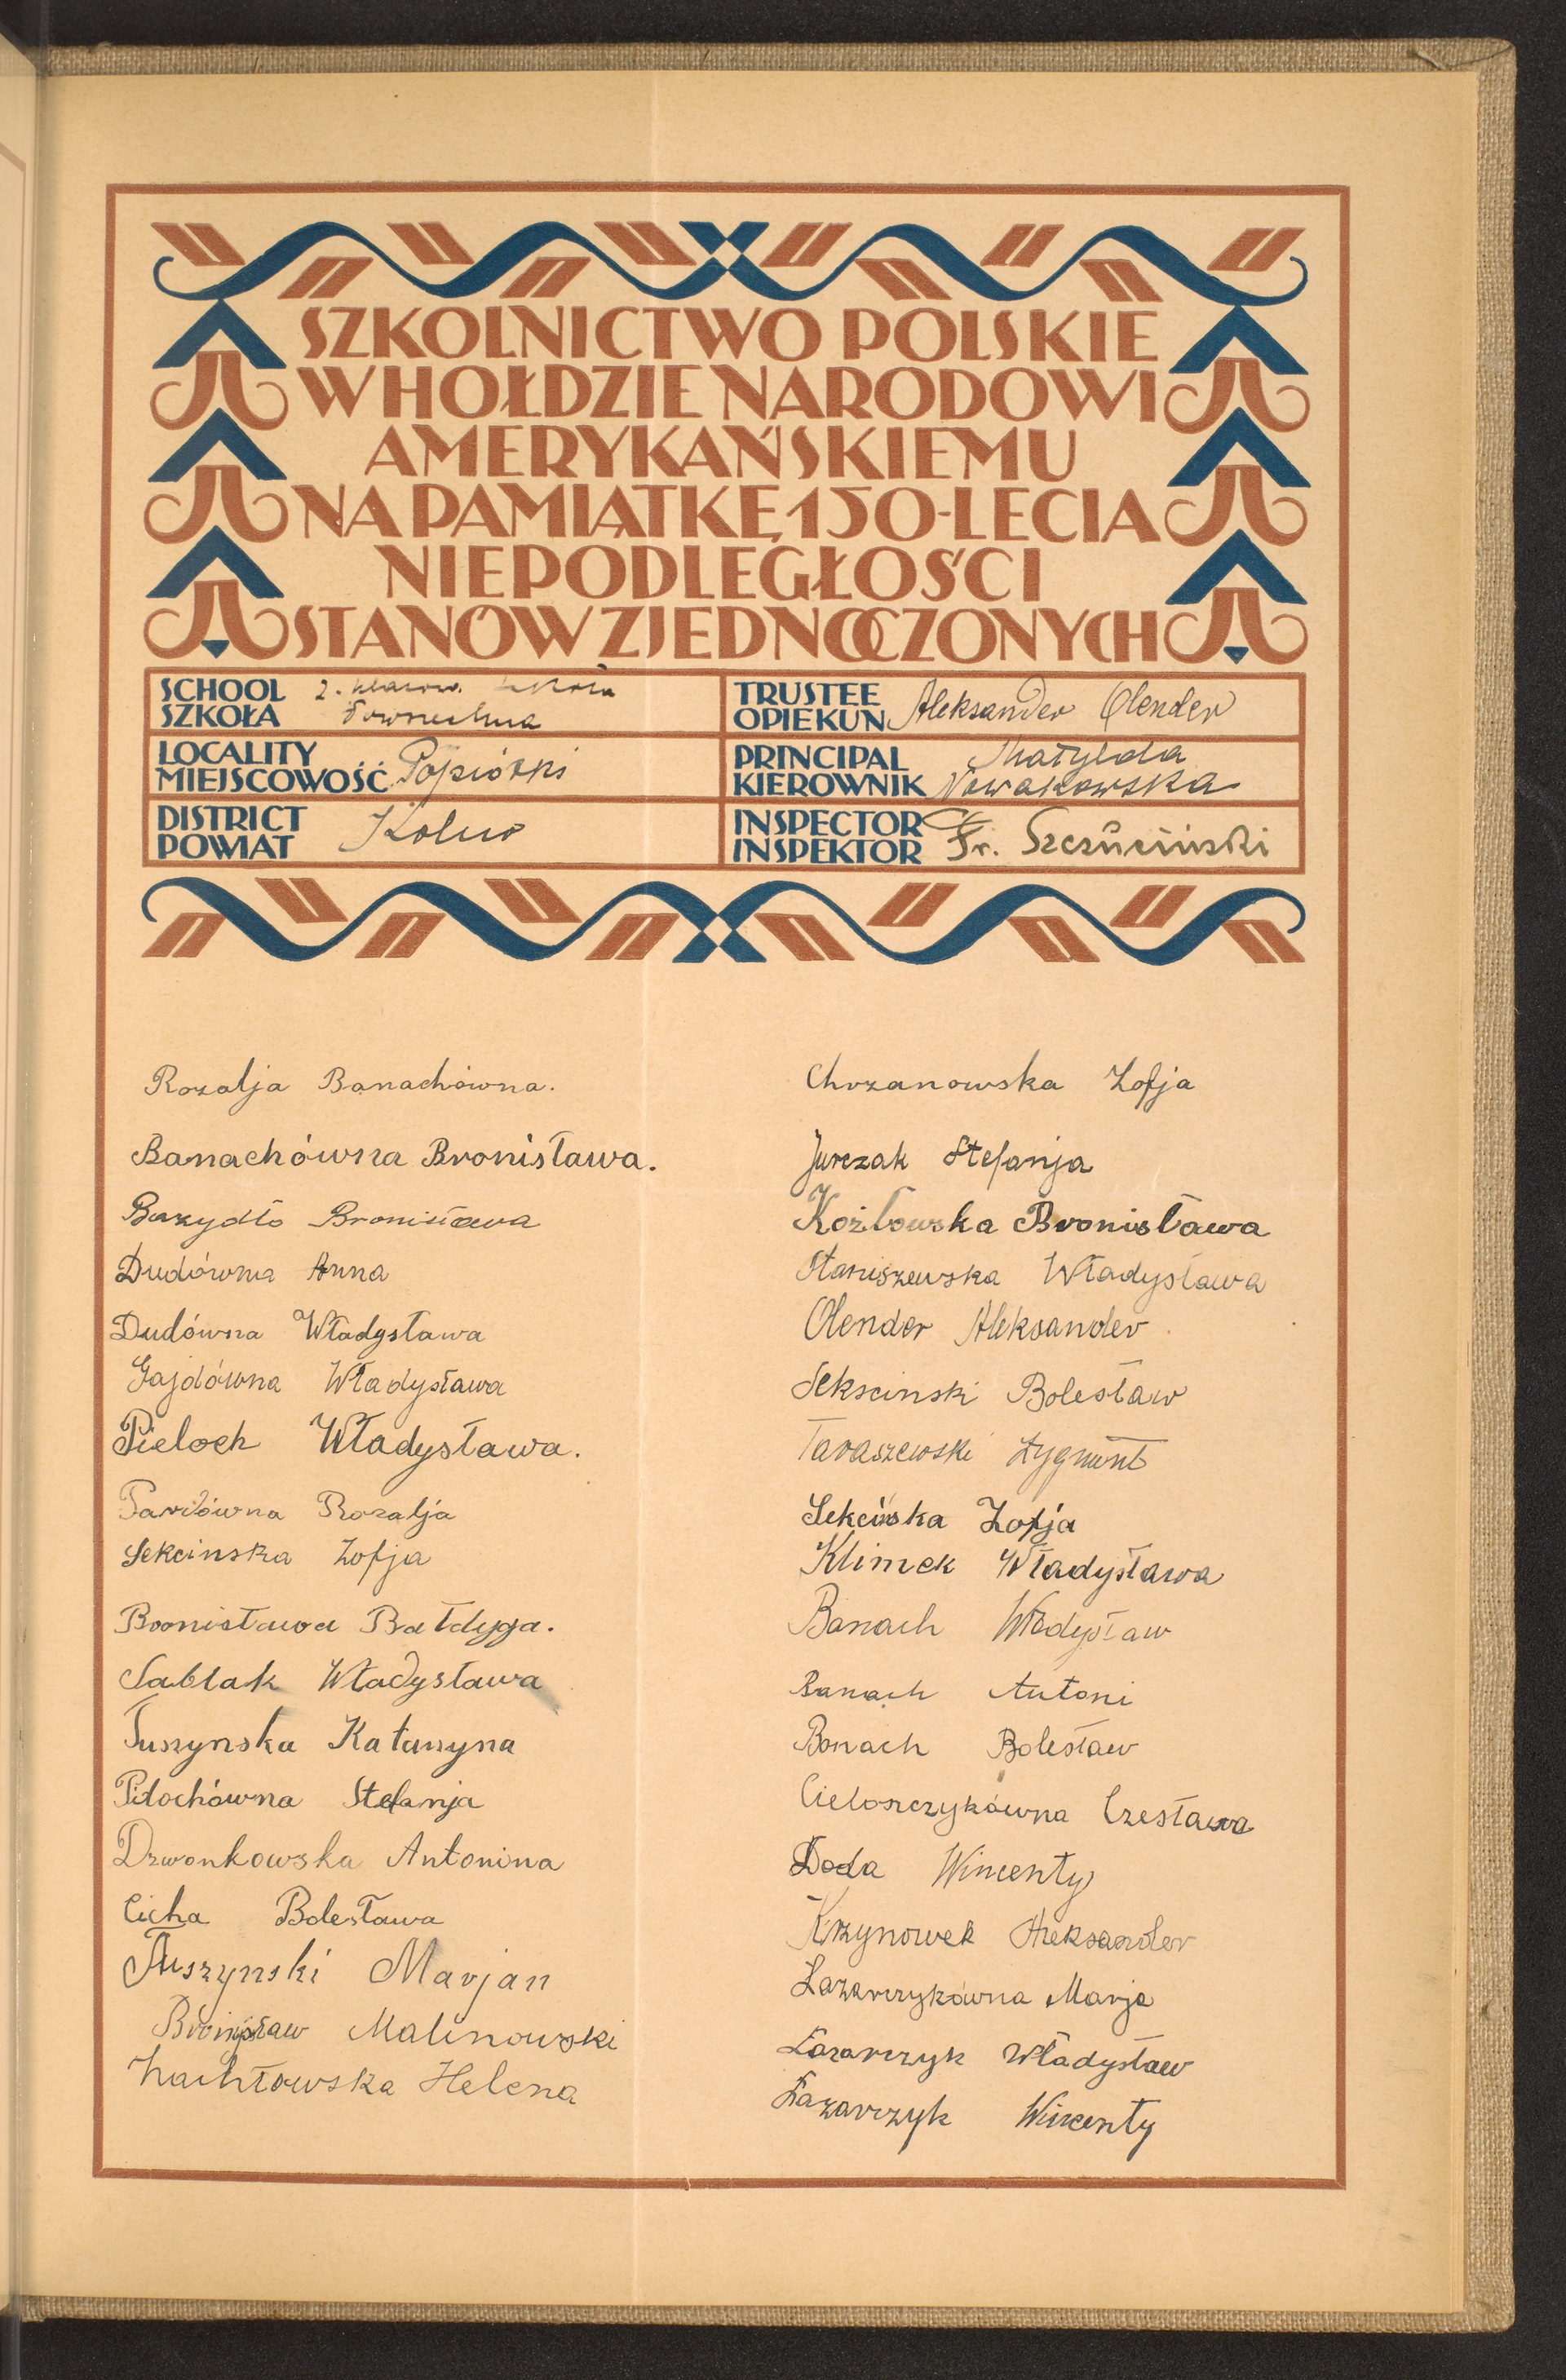 SZKOLNICTWO POLSKIE
W HOŁDZIE NARODOWI
AMERYKAŃSKIEMU
NA PAMIĄTKĘ 150-LECIA
NIEPODLEGŁOŚCI
STANÓW ZJEDNOCZONYCH
SCHOOL
SZKOŁA
2. klasow. szkoła
Powszechna
LOCALITY
MIEJSCOWOŚĆ
Popiołki
DISTRICT
POWIAT
Kolno
TRUSTEE
OPIEKUN
Aleksander Olender
PRINCIPAL
KIEROWNIK
Matylda
Nowakowska
INSPECTOR
INSPEKTOR
Fr. Szczuciński
Rozalja Banachówna.
Banachówna Bronisława.
Bazydło Bronisława
Dudówna Anna
Dudówna Władysława
Gajdówna Władysława
Pieloch Władysława.
Pardówna Rozalja
Sekcinska Zofja
Bronisława Bałdyga.
Sablak Władysława
Tuszynska Katarzyna
Pilochówna Stefanja
Dzwonkowska Antonina
Cicha Bolesława
Tuszynski Marjan
Bronisław Malinowski
Helena
Chrzanowska Zofja
Jurczak Stefanja
Kozłowska Bronisława
Staniszewska Władysława
Olender Aleksander
Sekscinski Bolesław
Taraszewski Zygmunt
Sekcińska Zofja
Klimek Władysława
Banach Władysław
Banach Antoni
Banach Bolesław
Cieloszczykówna Czesława
Doda Wincenty
Krzynowek Aleksander
Łazarczykówna Marja
Łazarczyk Władysław
Łazarczyk Wincenty